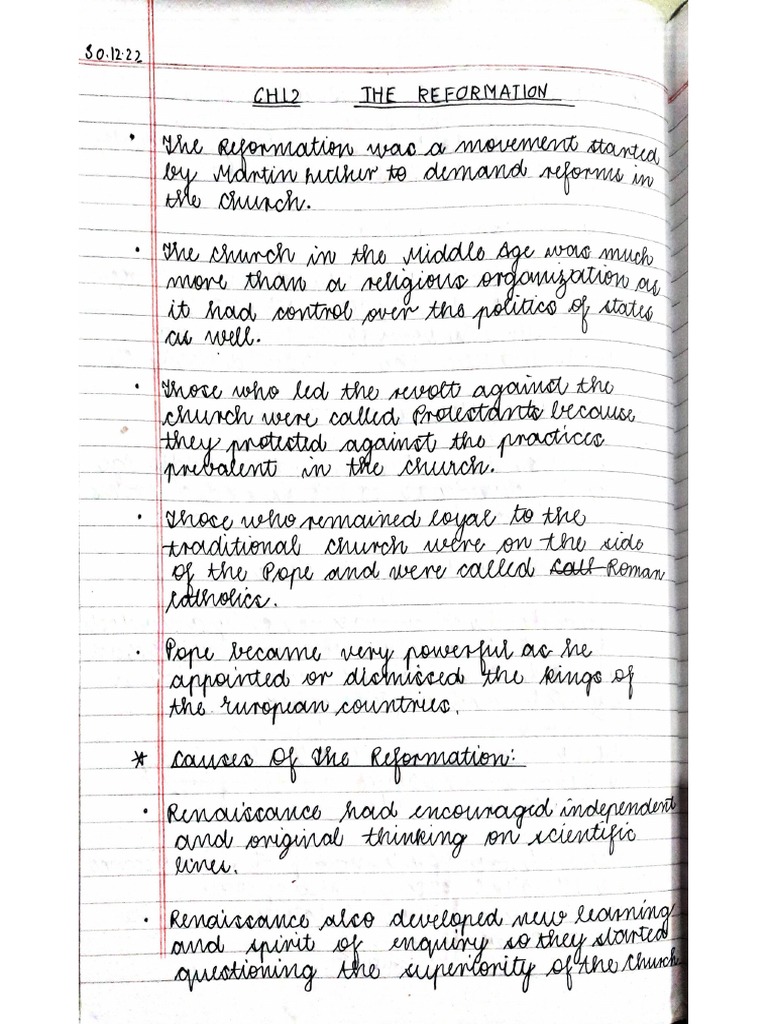 30.12.22
CH12 THE REFORMATION
• The Reformation was a movement started
by Martin Luther to demand reforms in
the church.
• The church in the Middle Age was much
more than a religious organization as
it had control over the politics of states
as well.
• Those who led the revolt against the
church were called Protestants because
they protested against the practices
prevalent in the church.
• Those who remained loyal to the
traditional church were on the side
of the Pope and were called Roman
Catholics.
• Pope became very powerful as he
appointed or dismissed the kings of
the European countries.
* Causes Of The Reformation:
• Renaissance had encouraged independent
and original thinking on scientific
lines.
• Renaissance also developed new learning
and spirit of enquiry so they started
questioning the superiority of the Church